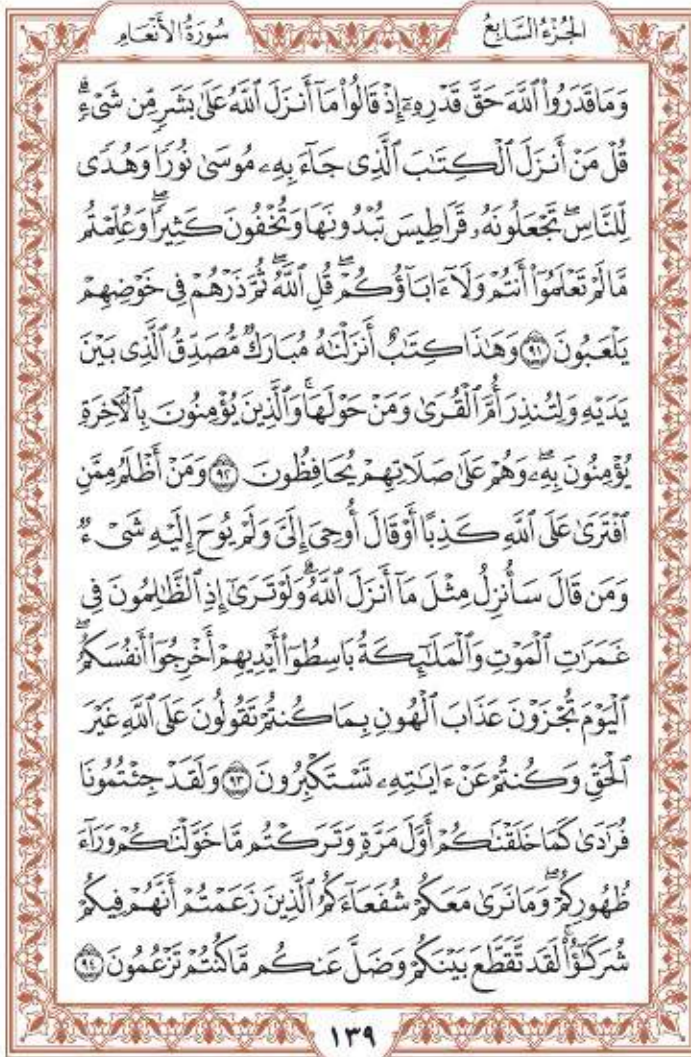 الجُزْءُ السَّابِعُ
سُورَةُ الأَنْعَامِ
وَمَا قَدَرُوا۟ ٱللَّهَ حَقَّ قَدْرِهِۦٓ إِذْ قَالُوا۟ مَآ أَنزَلَ ٱللَّهُ عَلَىٰ بَشَرٍ مِّن شَىْءٍۗ
قُلْ مَنْ أَنزَلَ ٱلْكِتَٰبَ ٱلَّذِى جَآءَ بِهِۦ مُوسَىٰ نُورًا وَهُدًى
لِّلنَّاسِۖ تَجْعَلُونَهُۥ قَرَاطِيسَ تُبْدُونَهَا وَتُخْفُونَ كَثِيرًاۖ وَعُلِّمْتُم
مَّا لَمْ تَعْلَمُوٓا۟ أَنتُمْ وَلَآ ءَابَآؤُكُمْۖ قُلِ ٱللَّهُۖ ثُمَّ ذَرْهُمْ فِى خَوْضِهِمْ
يَلْعَبُونَ ۝٩١ وَهَٰذَا كِتَٰبٌ أَنزَلْنَٰهُ مُبَارَكٌ مُّصَدِّقُ ٱلَّذِى بَيْنَ
يَدَيْهِ وَلِتُنذِرَ أُمَّ ٱلْقُرَىٰ وَمَنْ حَوْلَهَاۚ وَٱلَّذِينَ يُؤْمِنُونَ بِٱلْءَاخِرَةِ
يُؤْمِنُونَ بِهِۦۖ وَهُمْ عَلَىٰ صَلَاتِهِمْ يُحَافِظُونَ ۝٩٢ وَمَنْ أَظْلَمُ مِمَّنِ
ٱفْتَرَىٰ عَلَى ٱللَّهِ كَذِبًا أَوْ قَالَ أُوحِىَ إِلَىَّ وَلَمْ يُوحَ إِلَيْهِ شَىْءٌ
وَمَن قَالَ سَأُنزِلُ مِثْلَ مَآ أَنزَلَ ٱللَّهُۗ وَلَوْ تَرَىٰٓ إِذِ ٱلظَّٰلِمُونَ فِى
غَمَرَٰتِ ٱلْمَوْتِ وَٱلْمَلَٰٓئِكَةُ بَاسِطُوٓا۟ أَيْدِيهِمْ أَخْرِجُوٓا۟ أَنفُسَكُمُۖ
ٱلْيَوْمَ تُجْزَوْنَ عَذَابَ ٱلْهُونِ بِمَا كُنتُمْ تَقُولُونَ عَلَى ٱللَّهِ غَيْرَ
ٱلْحَقِّ وَكُنتُمْ عَنْ ءَايَٰتِهِۦ تَسْتَكْبِرُونَ ۝٩٣ وَلَقَدْ جِئْتُمُونَا
فُرَٰدَىٰ كَمَا خَلَقْنَٰكُمْ أَوَّلَ مَرَّةٍ وَتَرَكْتُم مَّا خَوَّلْنَٰكُمْ وَرَآءَ
ظُهُورِكُمْۖ وَمَا نَرَىٰ مَعَكُمْ شُفَعَآءَكُمُ ٱلَّذِينَ زَعَمْتُمْ أَنَّهُمْ فِيكُمْ
شُرَكَٰٓؤُا۟ۚ لَقَد تَّقَطَّعَ بَيْنَكُمْ وَضَلَّ عَنكُم مَّا كُنتُمْ تَزْعُمُونَ ۝٩٤
١٣٩